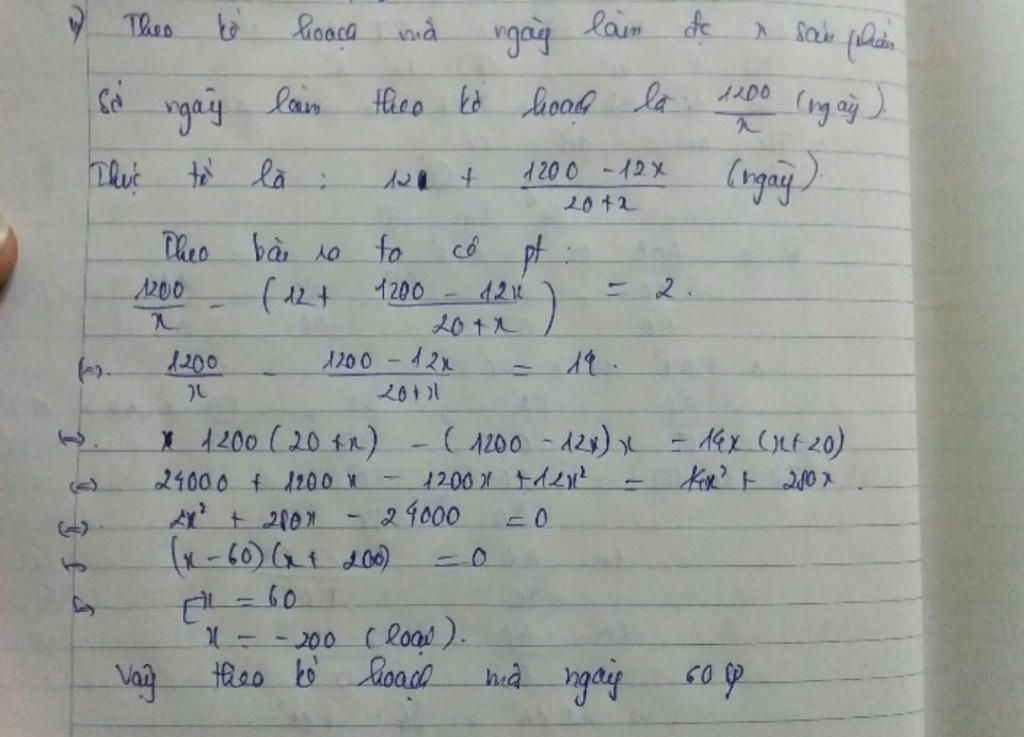 Theo kế hoạch mỗi ngày làm đc x sản phẩm
Số ngày làm theo kế hoạch là: 1200/x (ngày).
Thực tế là : 12 + (1200 - 12x)/(20+x) (ngày).
Theo bài ra ta có pt :
1200/x - (12 + (1200 - 12x)/(20+x)) = 2.
(=). 1200/x - (1200 - 12x)/(20+x) = 14.
(=). 1200(20+x) - (1200 - 12x)x = 14x(x+20)
(=) 24000 + 1200x - 1200x + 12x² = 14x² + 280x.
(=). 2x² + 280x - 24000 = 0
(x-60)(x+ 200) = 0
[x = 60
x = -200 (loại).
Vậy theo kế hoạch mỗi ngày 60 sp